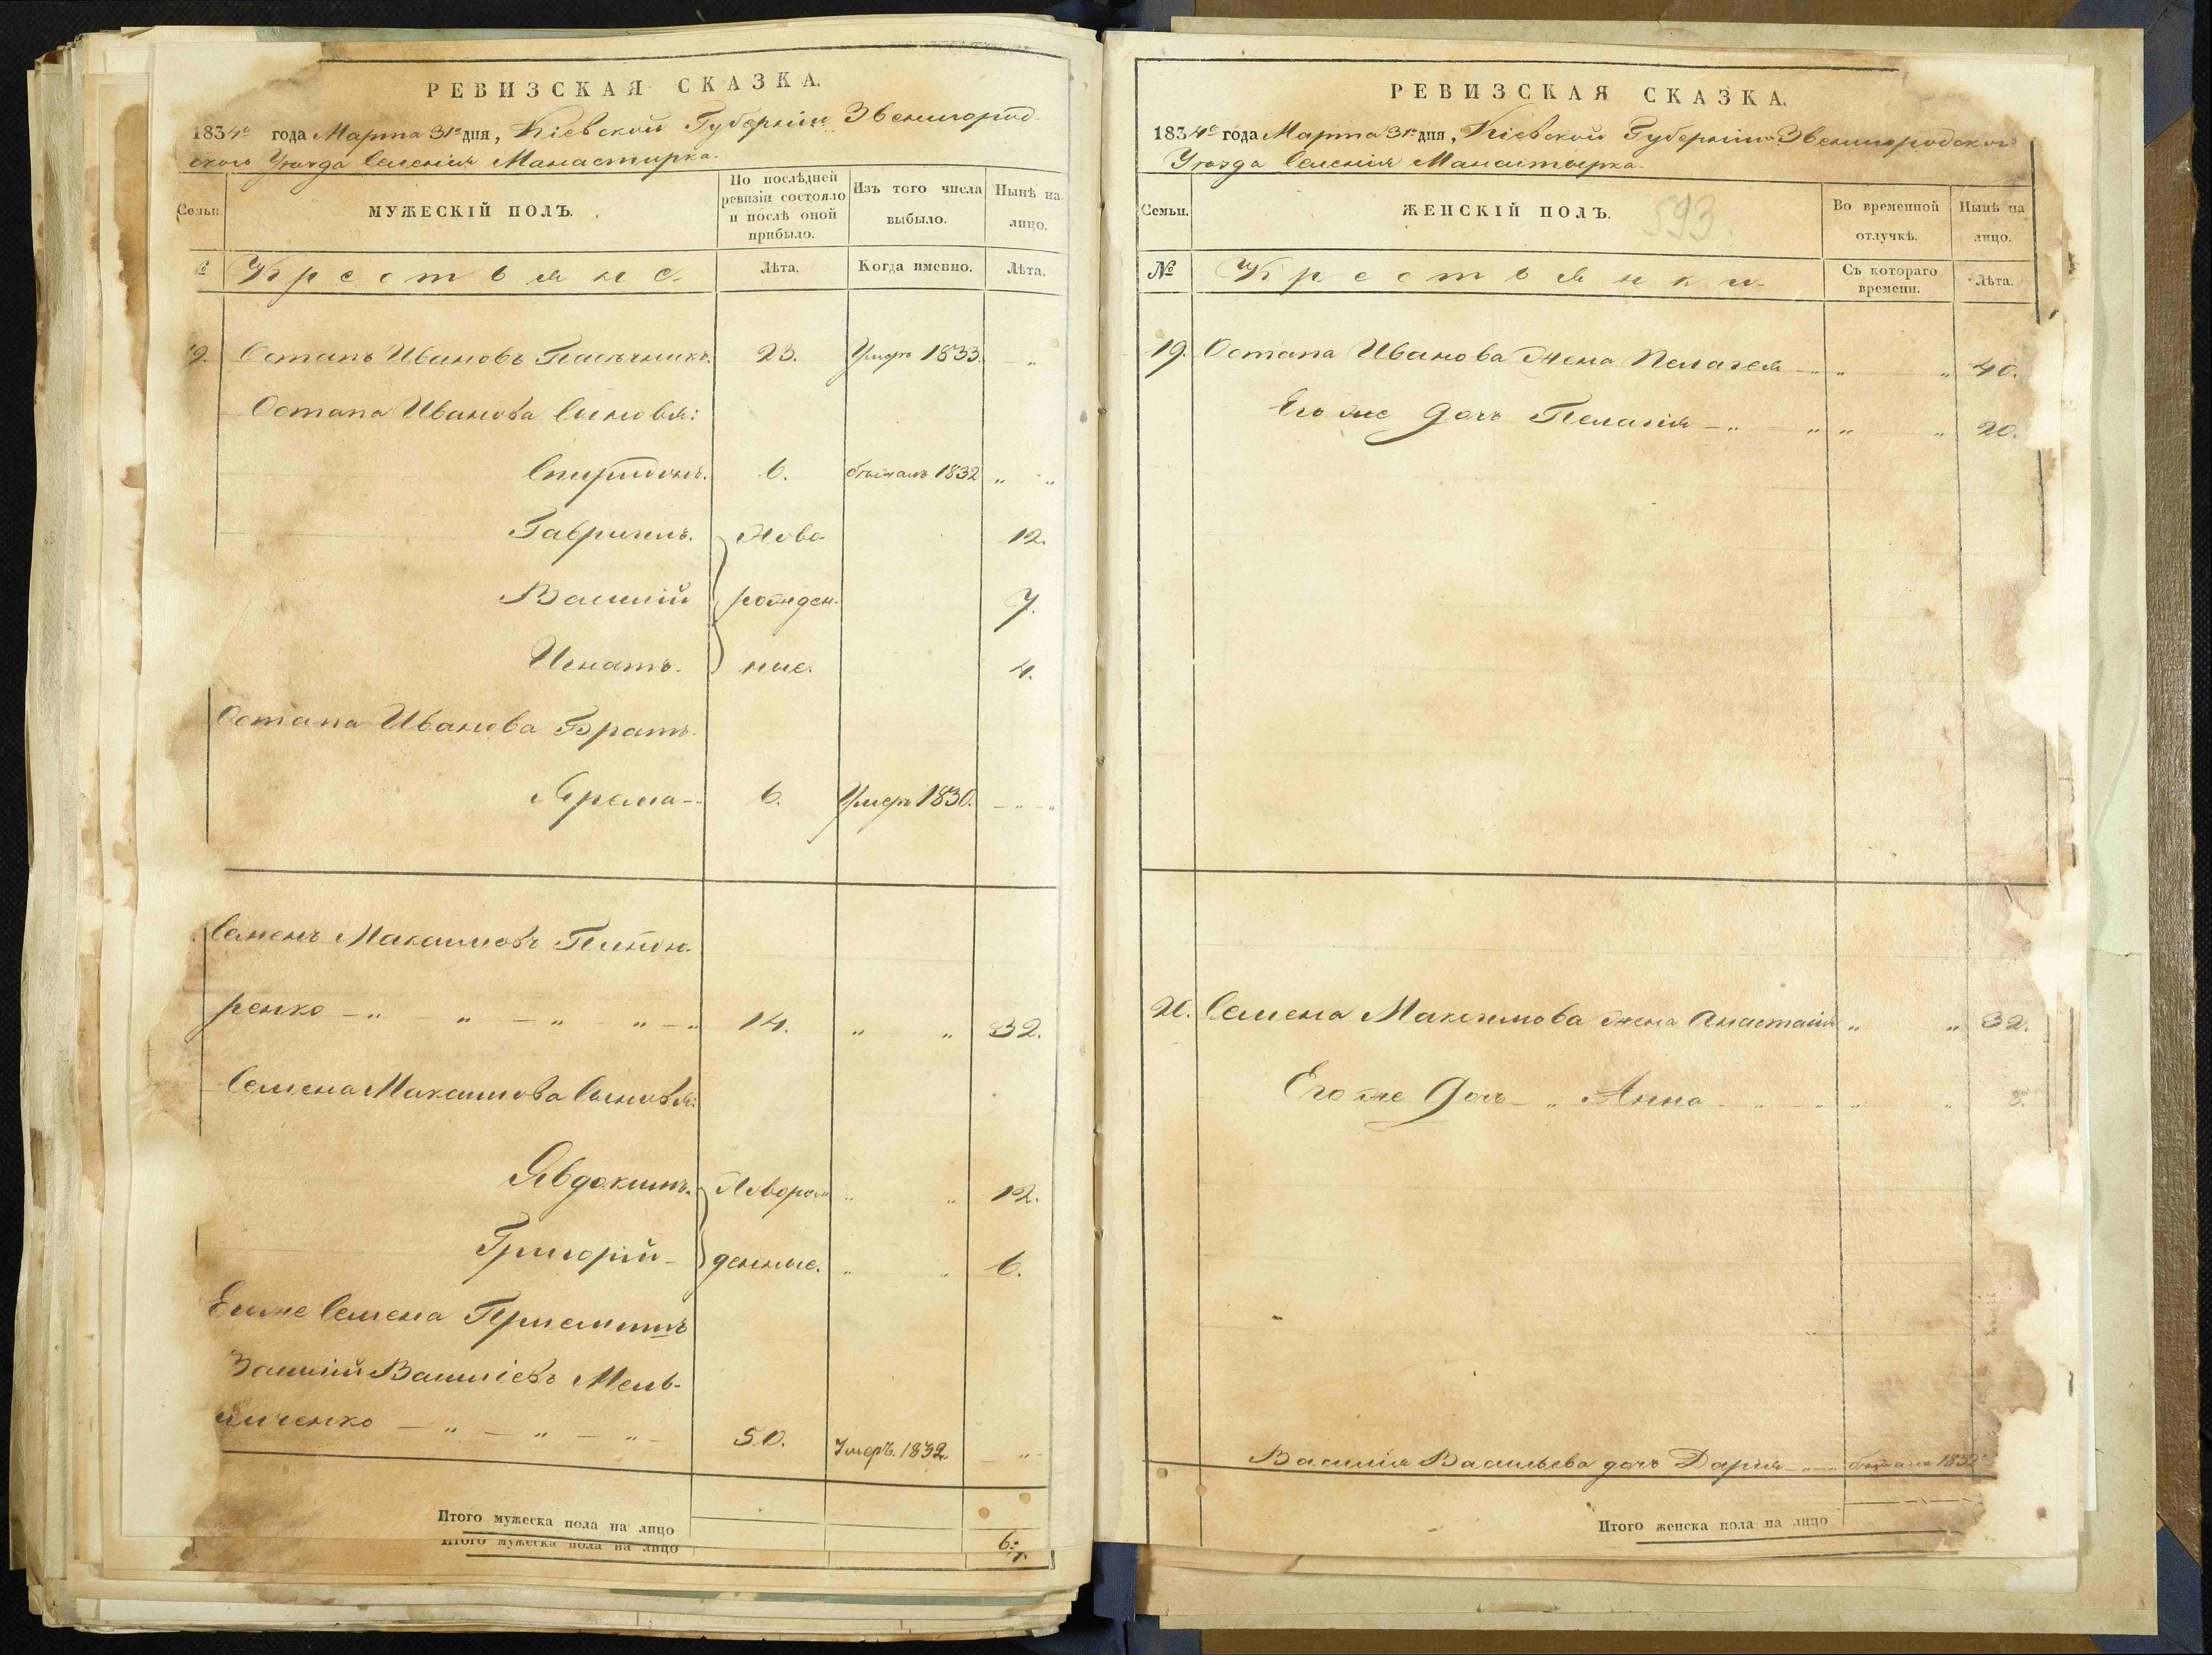 РЕВИЗСКАЯ СКАЗКА.
1834го года Марта 31го дня, Кіевской Губерніи Звенигород-
ского Уѣзда Селенія Манастирка.
Семьи.
МУЖЕСКІЙ ПОЛЪ.
По послѣдней ревизіи состояло и послѣ оной прибыло.
Изъ того числа выбыло.
Нынѣ на лицо.
Крестьяне.
Лѣта.
Когда именно.
Лѣта.
19. Остапъ Ивановъ Пасѣчникъ. 23. Умеръ 1833. „
Остапа Иванова Сыновья:
Спиридонъ. 6. бѣжалъ 1832 „ „
Гавриилъ. Ново- 12.
Василій рожден- 7.
Игнатъ. ные. 4.
Остапа Иванова Братъ.
Ярема - 6. Умеръ 1830. - „ - „
Семенъ Максимовъ
ренко - „ - „ - „ - „ - „ 14. „ „ 32.
Семена Максимова Сыновья:
Явдокимъ. Новорож „ „ 12.
Григорій - денные. „ „ 6.
Его же Семена Приемышъ
Василій Василіевъ Мель-
ниченко - „ - „ - „ - 50. Умеръ. 1832 „
Итого мужеска пола на лицо
Итого мужеска пола на лицо 6:
РЕВИЗСКАЯ СКАЗКА.
1834го года Марта 31го дня, Кіевской Губерніи Звенигородского
Уѣзда Селенія Манастырка.
593.
Семьи.
ЖЕНСКІЙ ПОЛЪ.
Во временной отлучкѣ.
Нынѣ на лицо.
№
Крестьянки.
Съ котораго времени.
Лѣта.
19. Остапа Иванова Жена Пелагея - „ „ „ 40.
Его же дочь Пелагія - „ - „ „ „ 20.
20. Семена Максимова Жена Анастасія „ „ 32.
Его же Дочь - „ Анна - „ - „ „ 8.
Василія Васильева дочь Дарія - „ - бѣжала 1832го
Итого женска пола на лицо